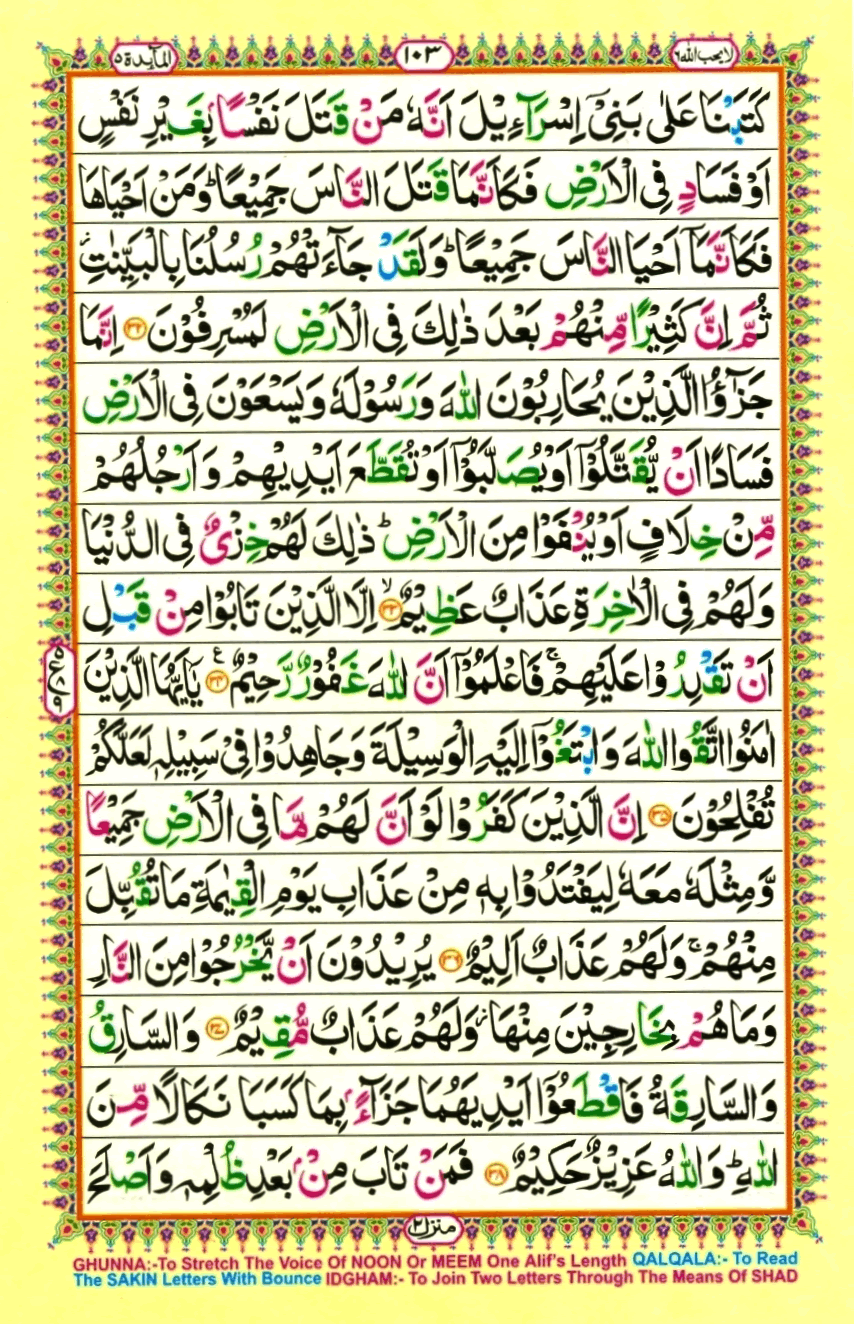 المآيدة ۵
۱۰۳
لا يحب الله ۶
كَتَبْنَا عَلٰى بَنِىْٓ اِسْرَآءِيْلَ اَنَّهٗ مَنْ قَتَلَ نَفْسًا بِغَيْرِ نَفْسٍ
اَوْ فَسَادٍ فِى الْاَرْضِ فَكَاَنَّمَا قَتَلَ النَّاسَ جَمِيْعًا ؕ وَمَنْ اَحْيَاهَا
فَكَاَنَّمَاۤ اَحْيَا النَّاسَ جَمِيْعًا ؕ وَلَقَدْ جَآءَتْهُمْ رُسُلُنَا بِالْبَيِّنٰتِ ؗ
ثُمَّ اِنَّ كَثِيْرًا مِّنْهُمْ بَعْدَ ذٰلِكَ فِى الْاَرْضِ لَمُسْرِفُوْنَ ۳۲ اِنَّمَا
جَزٰٓؤُا الَّذِيْنَ يُحَارِبُوْنَ اللّٰهَ وَرَسُوْلَهٗ وَيَسْعَوْنَ فِى الْاَرْضِ
فَسَادًا اَنْ يُّقَتَّلُوْۤا اَوْ يُصَلَّبُوْۤا اَوْ تُقَطَّعَ اَيْدِيْهِمْ وَاَرْجُلُهُمْ
مِّنْ خِلَافٍ اَوْ يُنْفَوْا مِنَ الْاَرْضِ ؕ ذٰلِكَ لَهُمْ خِزْىٌ فِى الدُّنْيَا
وَلَهُمْ فِى الْاٰخِرَةِ عَذَابٌ عَظِيْمٌ ۳۳ ۙ اِلَّا الَّذِيْنَ تَابُوْا مِنْ قَبْلِ
اَنْ تَقْدِرُوْا عَلَيْهِمْ ۚ فَاعْلَمُوْۤا اَنَّ اللّٰهَ غَفُوْرٌ رَّحِيْمٌ ۳۴ ع يٰۤاَيُّهَا الَّذِيْنَ
اٰمَنُوا اتَّقُوا اللّٰهَ وَابْتَغُوْۤا اِلَيْهِ الْوَسِيْلَةَ وَجَاهِدُوْا فِىْ سَبِيْلِهٖ لَعَلَّكُمْ
تُفْلِحُوْنَ ۳۵ اِنَّ الَّذِيْنَ كَفَرُوْا لَوْ اَنَّ لَهُمْ مَّا فِى الْاَرْضِ جَمِيْعًا
وَّمِثْلَهٗ مَعَهٗ لِيَفْتَدُوْا بِهٖ مِنْ عَذَابِ يَوْمِ الْقِيٰمَةِ مَا تُقُبِّلَ
مِنْهُمْ ۚ وَلَهُمْ عَذَابٌ اَلِيْمٌ ۳۶ يُرِيْدُوْنَ اَنْ يَّخْرُجُوْا مِنَ النَّارِ
وَمَا هُمْ بِخَارِجِيْنَ مِنْهَا ؗ وَلَهُمْ عَذَابٌ مُّقِيْمٌ ۳۷ وَالسَّارِقُ
وَالسَّارِقَةُ فَاقْطَعُوْۤا اَيْدِيَهُمَا جَزَآءًۢ بِمَا كَسَبَا نَكَالًا مِّنَ
اللّٰهِ ؕ وَاللّٰهُ عَزِيْزٌ حَكِيْمٌ ۳۸ فَمَنْ تَابَ مِنْۢ بَعْدِ ظُلْمِهٖ وَاَصْلَحَ
منزل ۲
GHUNNA:-To Stretch The Voice Of NOON Or MEEM One Alif's Length QALQALA:- To Read
The SAKIN Letters With Bounce IDGHAM:- To Join Two Letters Through The Means Of SHAD